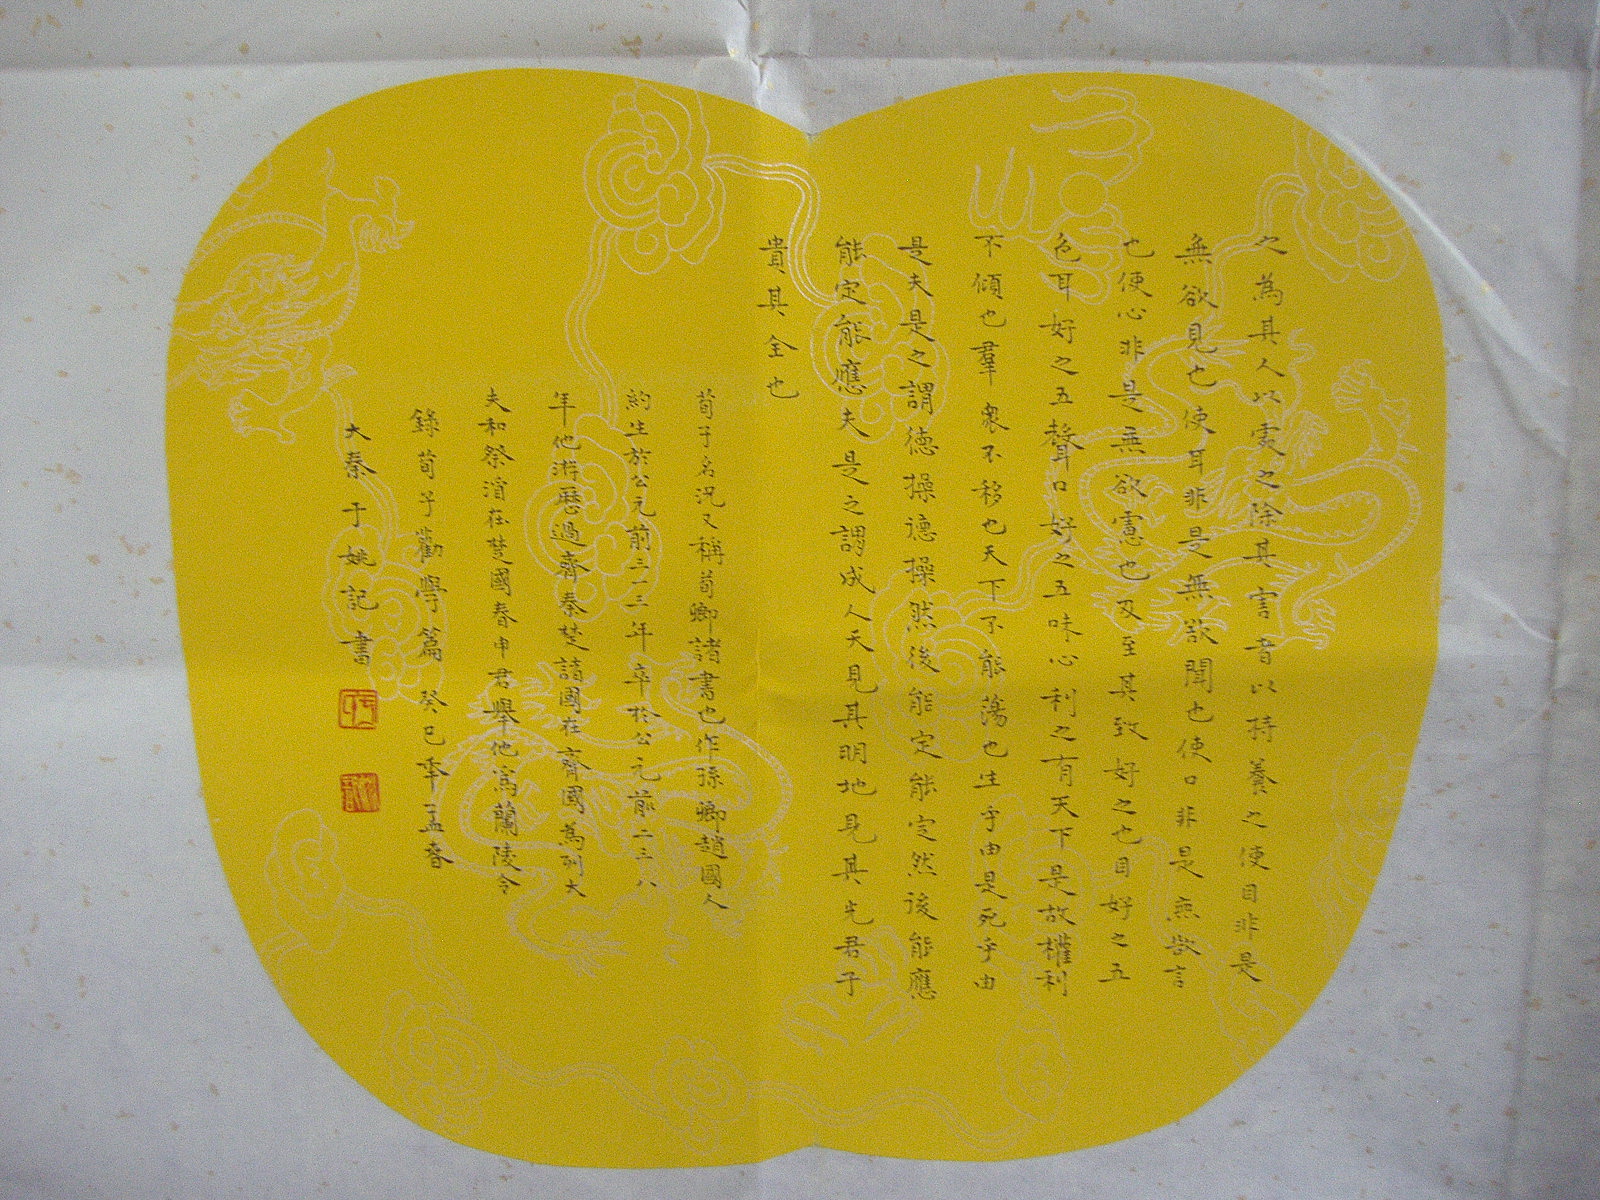 之為其人以處之除其害者以持養之使目非是
無欲見也使耳非是無欲聞也使口非是無欲言
也使心非是無欲慮也及至其致好之也目好之五
色耳好之五聲口好之五味心利之有天下是故權利
不傾也羣眾不移也天下不能蕩也生乎由是死乎由
是夫是之謂德操德操然後能定能定然後能應
能定能應夫是之謂成人天見其明地見其光君子
貴其全也
荀子名況又稱荀卿諸書也作孫卿趙國人
約生於公元前三一三年卒於公元前二三八
年他游歷過齊秦楚諸國在齊國為列大
夫和祭酒在楚國春申君舉他為蘭陵令
錄荀子勸學篇 癸巳年孟春
大秦于姚記書